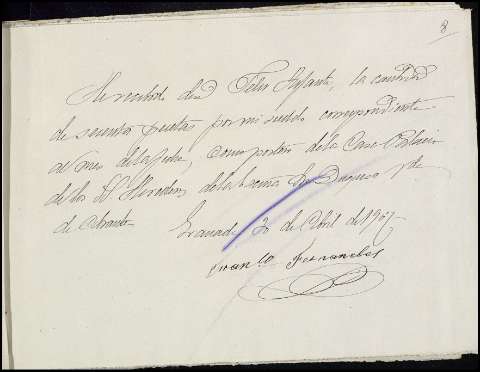 8
He recibido de Dn Felix Infante, la cantidad
de sesenta pesetas por mi sueldo correspondiente
al mes de la fecha, como portero de la Casa Palacio
de los H Herederos de la Excma Sra Duquesa Vda
de Abrantes
Granada 30 de Abril de 1907
Franco Fernandes